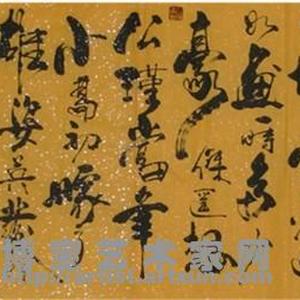 如畫一時多少
豪傑遥想
公瑾當年
小喬初嫁
雄姿英發
博宝艺术家网